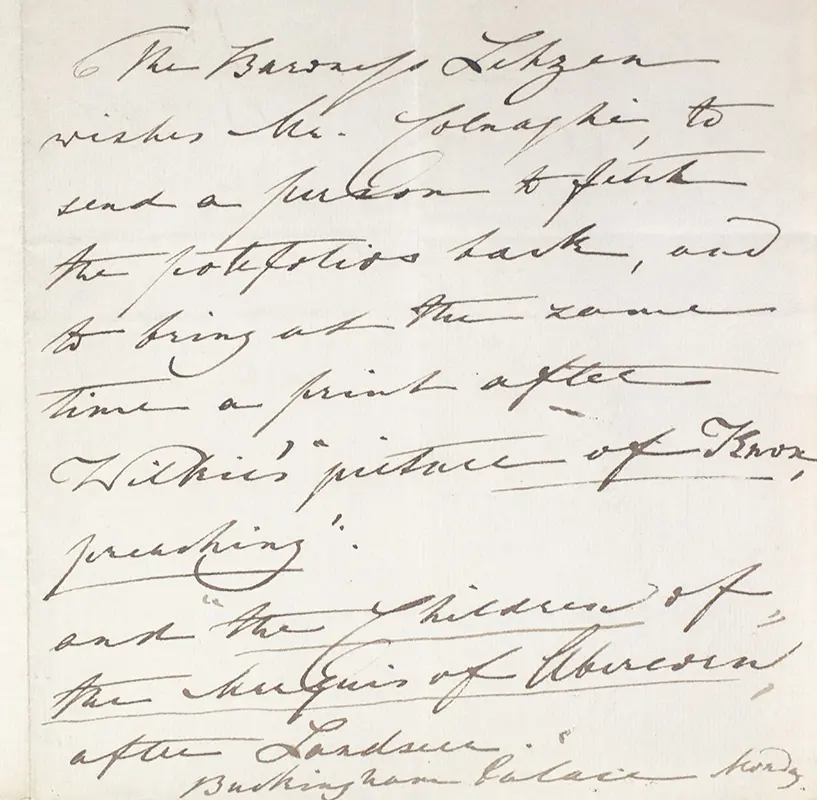 The Baroness Lehzen
wishes Mr. Colnaghi, to
send a person to fetch
the potefolios back, and
to bring at the same
time a print after
Wilkie's "picture of Knox,
preaching".
and "the Children of
the Marquis of Abercorn"
after Landseer.
Buckingham Palace Monday